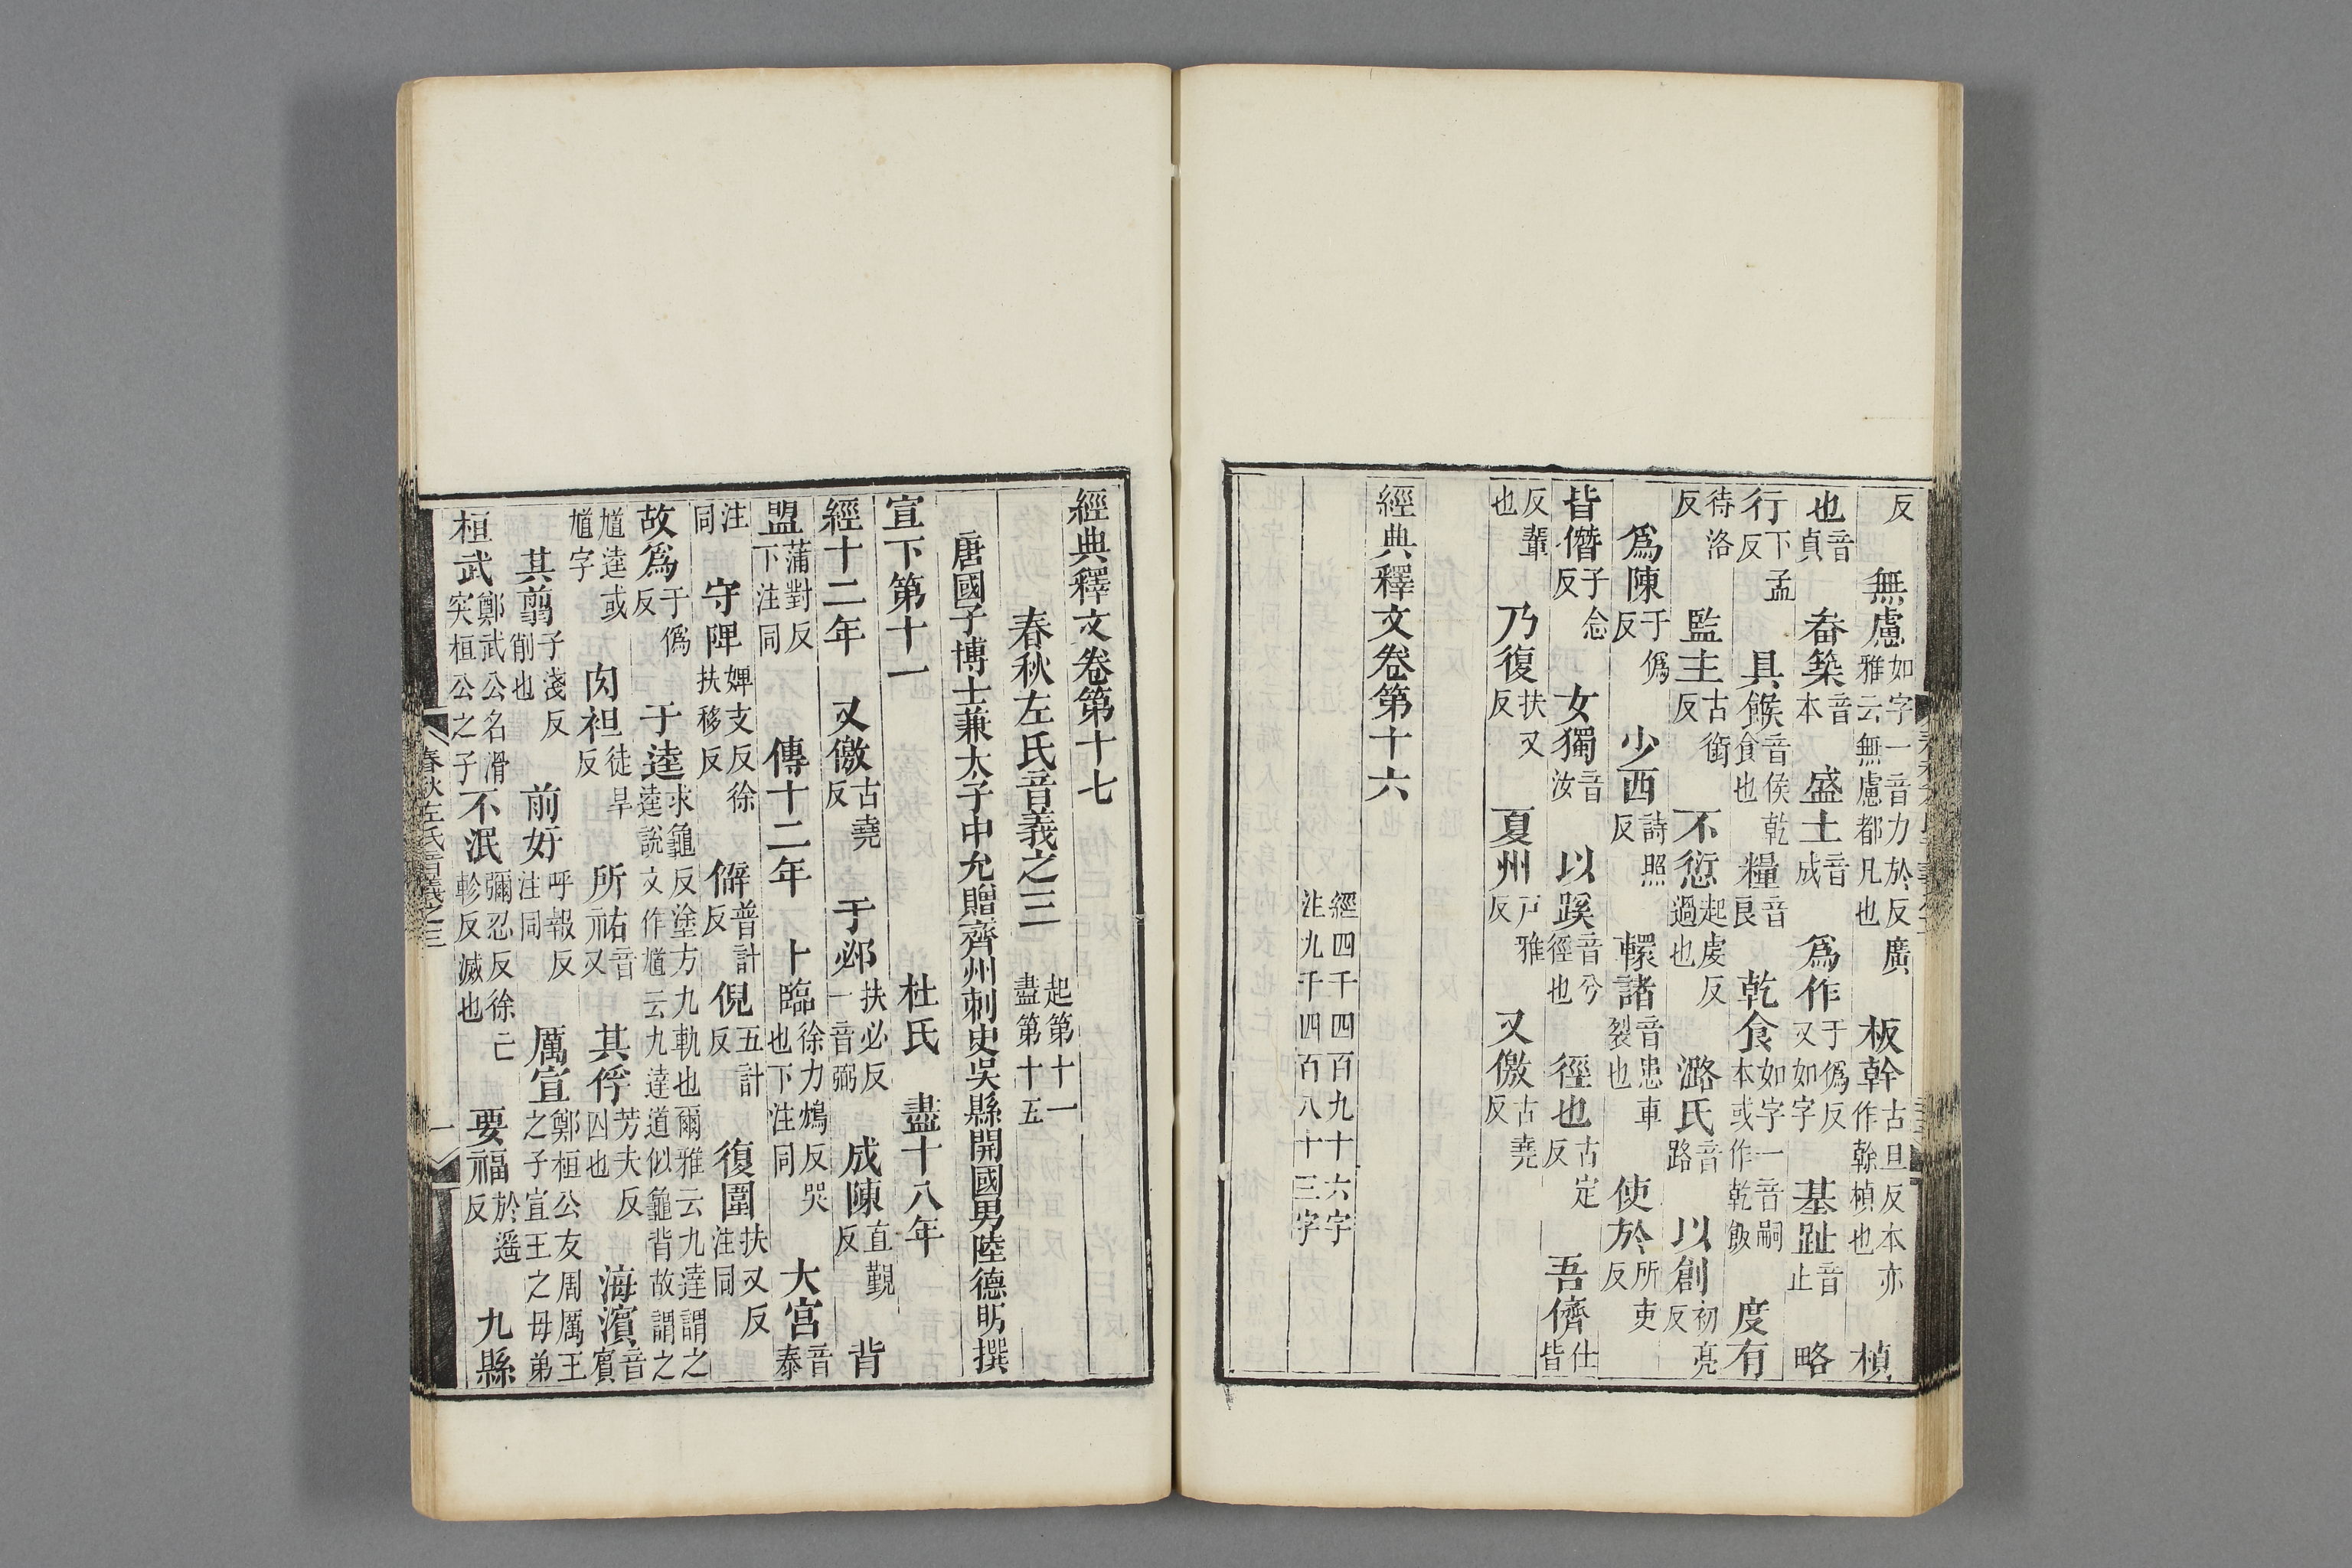 反無慮如字一音力於反廣雅云無慮都凡也板幹古旦反本亦作榦楨也楨
也音貞畚築音本盛土音成爲作于僞反又如字基趾音止略
行下孟反具餱音侯乾食也糧音良乾食如字一音嗣本或作乾飯度有
待洛反監主古銜反不愆起虔反過也潞氏音路以創初亮反
爲陳于僞反少西詩照反轘諸音患車裂也使於所吏反
皆僭子念反女獨音汝以蹊音兮徑也徑也古定反吾儕仕皆
反輩也乃復扶又反夏州戸雅反又儌古堯反
經典釋文卷第十六
經四千四百九十六字
注九千四百八十三字
經典釋文卷第十七
春秋左氏音義之三起第十一盡第十五
唐國子博士兼太子中允贈齊州刺史吳縣開國男陸德明撰
宣下第十一杜氏盡十八年
經十二年又儌古堯反于邲扶必反一音弼成陳直覲反背
盟蒲對反下注同傳十二年卜臨徐力鴆反哭也下注同大宮音泰
注同守陴婢支反徐扶移反僻普計反倪五計反復圍扶又反注同
故爲于僞反于逵求龜反塗方九軌也爾雅云九達謂之逵說文作馗云九達道似龜背故謂之
馗逵或馗字肉袒徒旱反所祐音又其俘芳夫反囚也海濱音賓
其翦子淺反削也前好呼報反注同厲宣鄭桓公友周厲王之子宣王之母弟
桓武鄭武公名滑突桓公之子不泯彌忍反徐亡軫反滅也要福於遥反九縣
春秋左氏音義之三
一